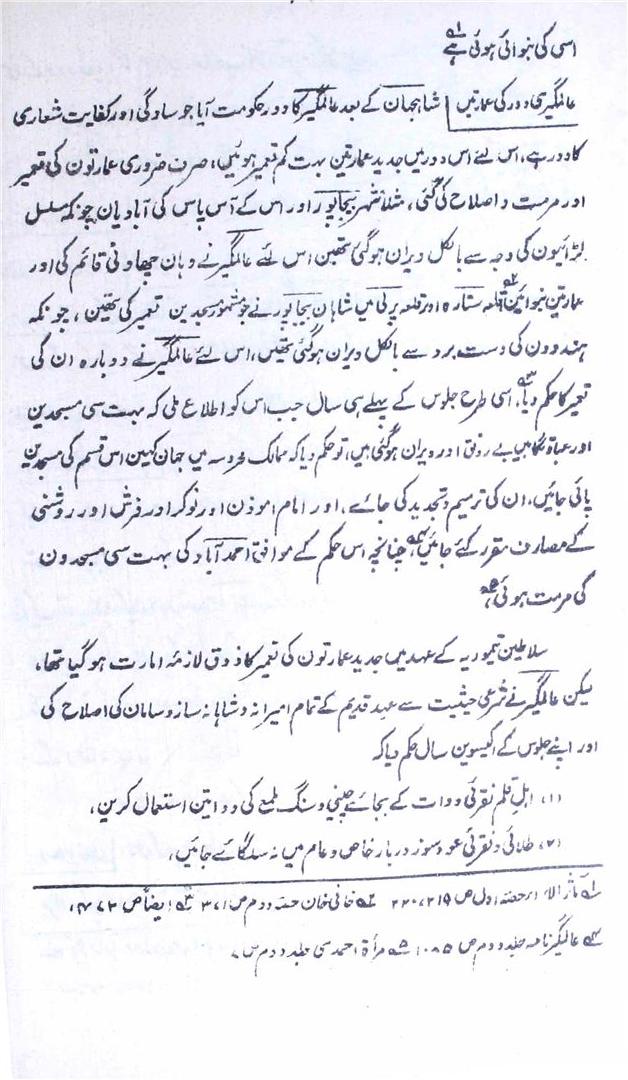 اسی کی بنوائی ہوئی ہے ۱؎
عالمگیری دور کی عمارتیں شاہجہان کے بعد عالمگیر کا دور حکومت آیا جو سادگی اور کفایت شعاری
کا دور ہے، اس لئے اس دور میں جدید عمارتین بہت کم تعمیر ہوئیں، صرف ضروری عمارتون کی تعمیر
اور مرمت و اصلاح کی گئی، مثلاً شہر بیجاپور اور اس کے آس پاس کی آبادیان چونکہ مسلسل
لڑائیون کی وجہ سے بالکل ویران ہوگئی تھین اس لئے عالمگیر نے وہان چھاونی قائم کی اور
عمارتین بنوائین ۲؎ قلعہ ستارہ اور قلعہ پرلی میں شاہان بیجاپور نے جو مشہور مسجدین تعمیر کی تھین، چونکہ
ہندوون کی دست برد سے بالکل ویران ہوگئی تھیں، اس لئے عالمگیر نے دوبارہ ان کی
تعمیر کا حکم دیا ۳؎، اسی طرح جلوس کے پہلے ہی سال جب اس کو اطلاع ملی کہ بہت سی مسجدین
اور عبادتگاہیں بے رونق اور ویران ہوگئی ہیں، تو حکم دیا کہ ممالک محروسہ میں جہان کہین اس قسم کی مسجدین
پائی جائیں، ان کی ترمیم و تجدید کی جائے، اور امام موذن اور نوکر اور فرش اور روشنی
کے مصارف مقرر کئے جائیں ۴؎، چنانچہ اس حکم کے موافق احمد آباد کی بہت سی مسجدون
کی مرمت ہوئی ۵؎،
سلاطین تیموریہ کے عہد میں جدید عمارتون کی تعمیر کا ذوق لازمۂ امارت ہو گیا تھا،
لیکن عالمگیر نے شرعی حیثیت سے عہد قدیم کے تمام امیرانہ و شاہانہ ساز و سامان کی اصلاح کی
اور اپنے جلوس کے اکیسوین سال حکم دیا کہ
(۱) اہل قلم نقرئی دوات کے بجائے چینی و سنگ طمع کی دواتین استعمال کرین،
(۲) طلائی و نقرئی عود سوز دربار خاص و عام میں نہ سلگائے جائیں،
۱؎ مآثر الامرا حصہ اول ص ۲۱۹، ۲۲۰ ۲؎ خافی خان حصہ دوم ص ۳۷۱ ۳؎ ایضاً ص ۴۷۳،
۴؎ عالمگیر نامہ جلد دوم ص ۱۰۸۵ ۵؎ مرأۃ احمدی جلد دوم ص ۷